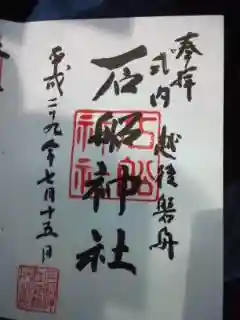 奉拝
式内 越後磐舟
石船神社
平成二九年七月十五日
石船
神社